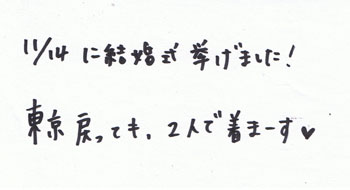 11/14 に結婚式 挙げました!
東京戻っても、2人で着まーす♥